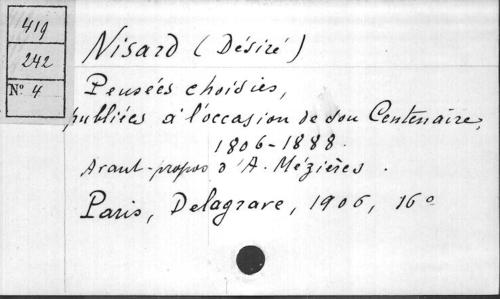 419
242
Nº 4
Nisard (Désiré)
Pensées choisies,
publiées à l'occasion de son Centenaire,
1806-1888.
Avant-propos d'A. Mézières.
Paris, Delagrave, 1906, 16º